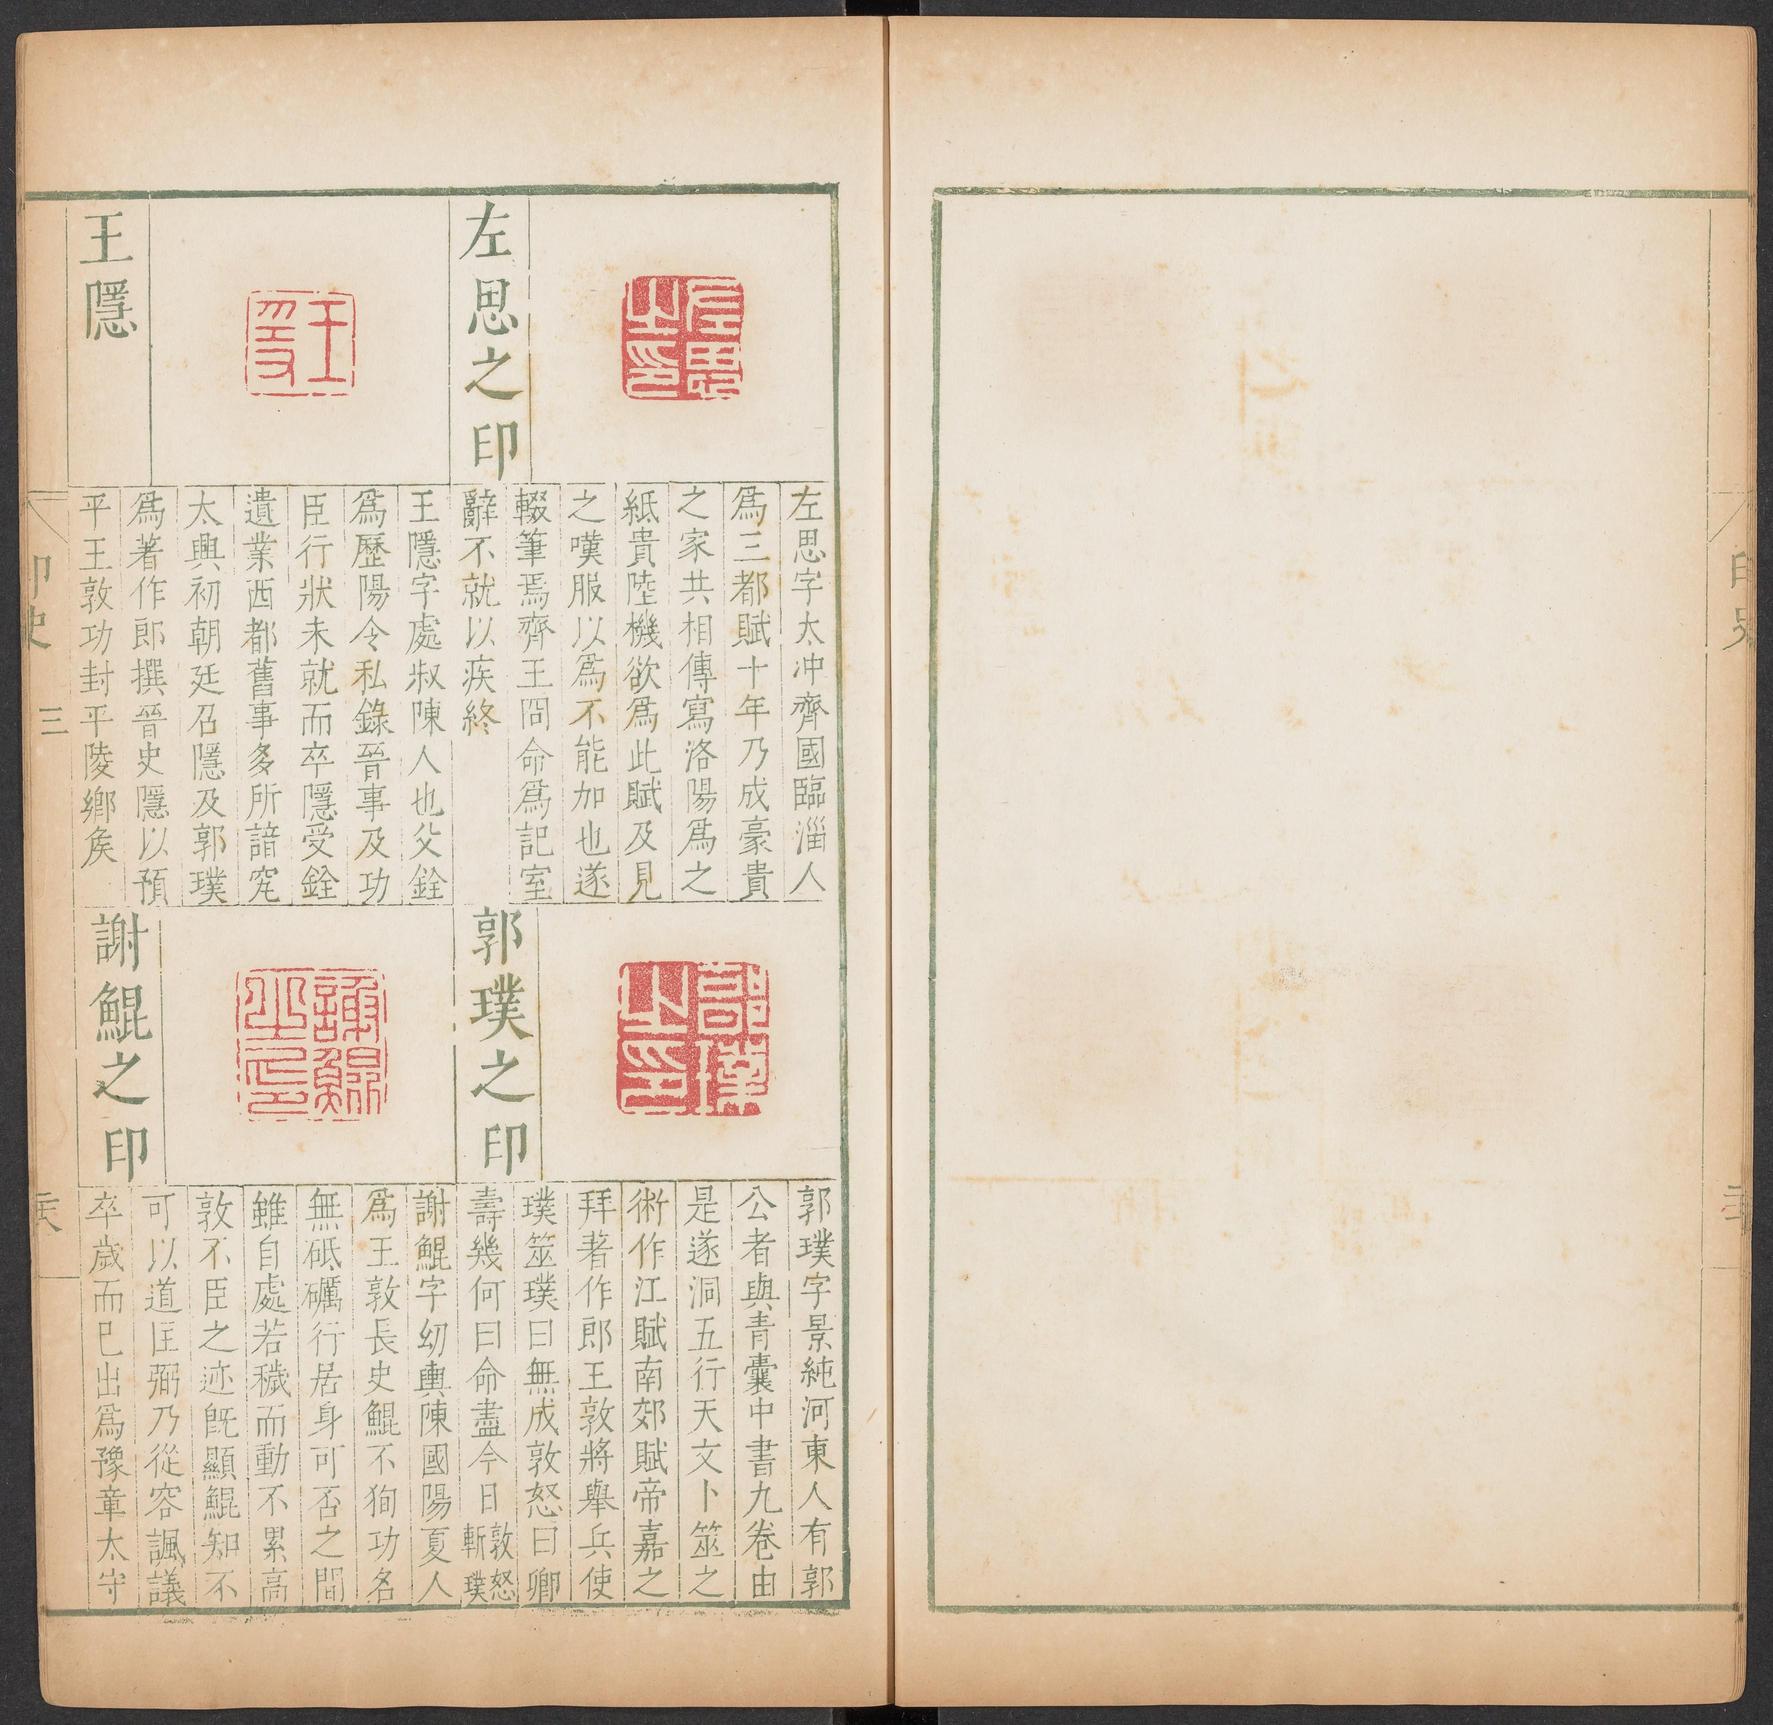 左思之印
左思字太冲齊國臨淄人
爲三都賦十年乃成豪貴
之家共相傳寫洛陽爲之
紙貴陸機欲爲此賦及見
之嘆服以爲不能加也遂
輟筆焉齊王冏命爲記室
辭不就以疾終
王隱
王隱字處叔陳人也父銓
爲歷陽令私錄晉事及功
臣行狀未就而卒隱受銓
遺業西都舊事多所諳究
太興初朝廷召隱及郭璞
爲著作郎撰晉史隱以預
平王敦功封平陵鄉矦
郭璞之印
郭璞字景純河東人有郭
公者與青囊中書九卷由
是遂洞五行天文卜筮之
術作江賦南郊賦帝嘉之
拜著作郎王敦將舉兵使
璞筮璞曰無成敦怒曰卿
壽幾何曰命盡今日敦怒斬璞
謝鯤之印
謝鯤字幼輿陳國陽夏人
爲王敦長史鯤不狥功名
無砥礪行居身可否之間
雖自處若穢而動不累高
敦不臣之迹旣顯鯤知不
可以道匡弼乃從容諷議
卒歲而已出爲豫章太守
印史
三